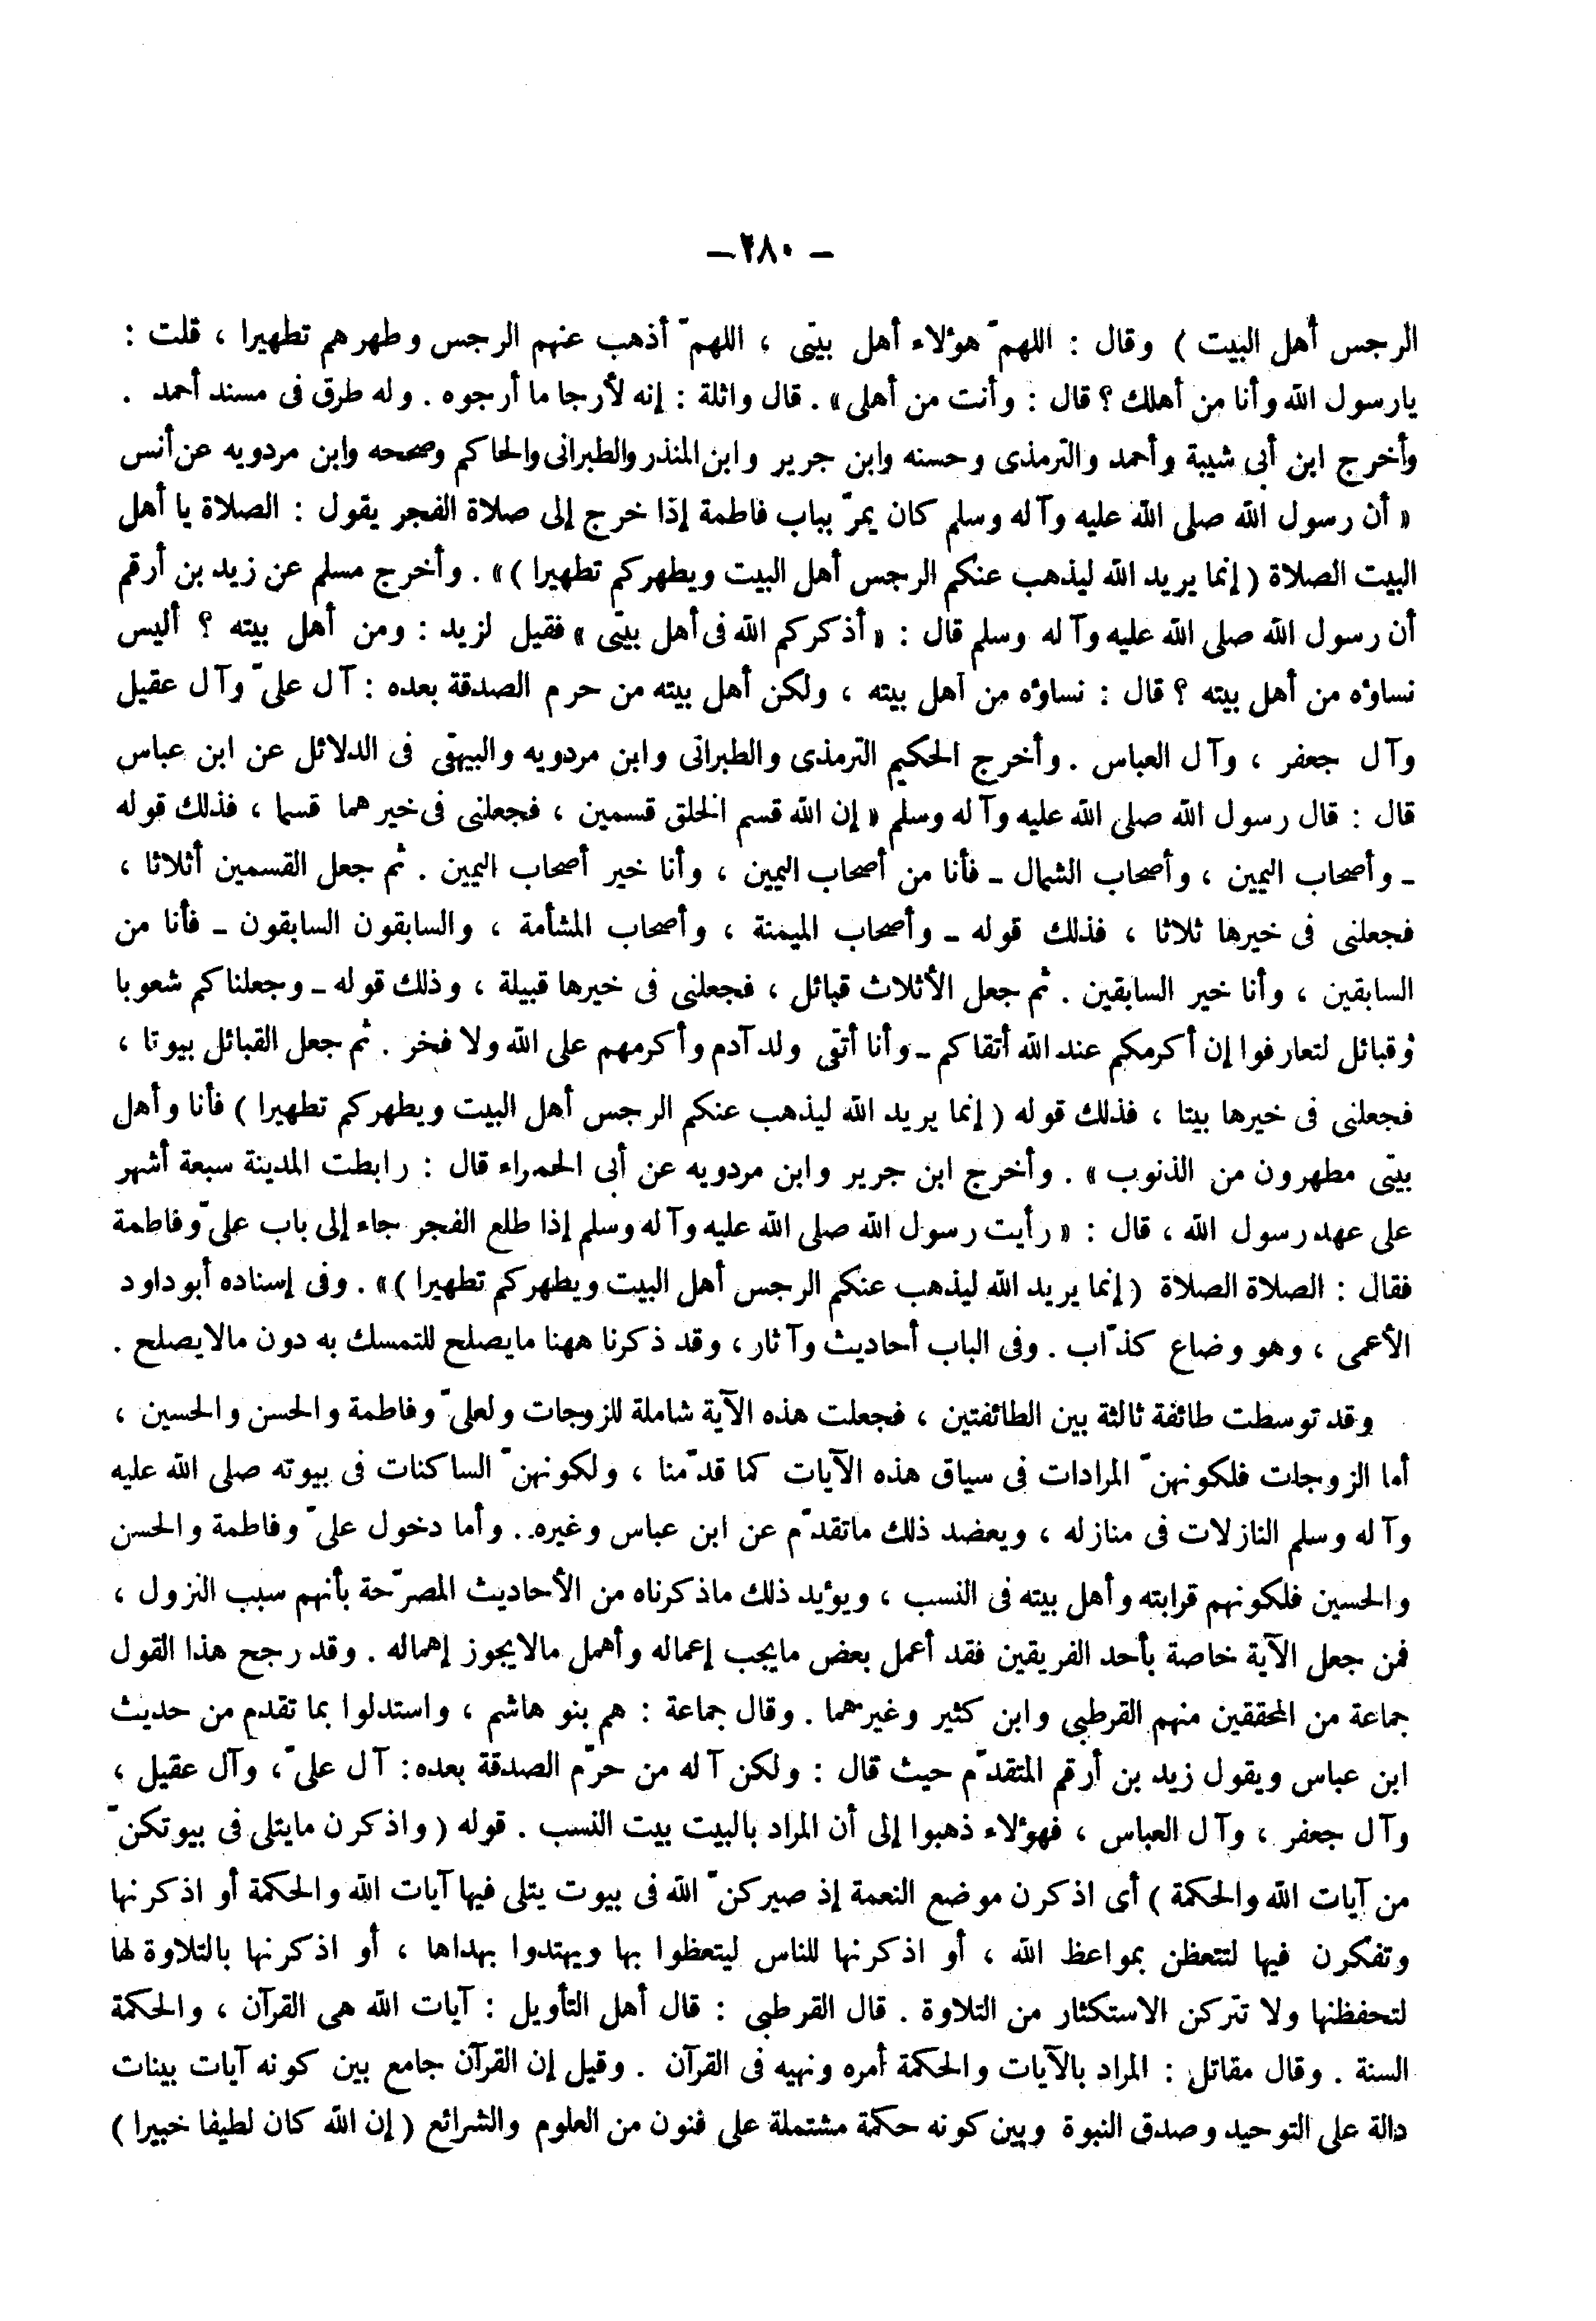 – ٢٨٠ –
الرجس أهل البيت ) وقال : اللهمّ هؤلاء أهل بيتى ، اللهمّ أذهب عنهم الرجس وطهرهم تطهيرا ، قلت :
يارسول الله وأنا من أهلك ؟ قال : وأنت من أهلى » . قال واثلة : إنه لأرجا ما أرجوه . وله طرق فى مسند أحمد .
وأخرج ابن أبى شيبة وأحمد والترمذى وحسنه وابن جرير وابن المنذر والطبرانى والحاكم وصححه وابن مردويه عن أنس
« أن رسول الله صلى الله عليه وآله وسلم كان يمرّ بباب فاطمة إذا خرج إلى صلاة الفجر يقول : الصلاة يا أهل
البيت الصلاة ( إنما يريد الله ليذهب عنكم الرجس أهل البيت ويطهركم تطهيرا ) » . وأخرج مسلم عن زيد بن أرقم
أن رسول الله صلى الله عليه وآله وسلم قال : « أذكركم الله فى أهل بيتى » فقيل لزيد : ومن أهل بيته ؟ أليس
نساؤه من أهل بيته ؟ قال : نساؤه من أهل بيته ، ولكن أهل بيته من حرم الصدقة بعده : آل علىّ وآل عقيل
وآل جعفر ، وآل العباس . وأخرج الحكيم الترمذى والطبرانى وابن مردويه والبيهقى فى الدلائل عن ابن عباس
قال : قال رسول الله صلى الله عليه وآله وسلم « إن الله قسم الخلق قسمين ، فجعلنى فى خيرهما قسما ، فذلك قوله
– وأصحاب اليمين ، وأصحاب الشمال – فأنا من أصحاب اليمين ، وأنا خير أصحاب اليمين . ثم جعل القسمين أثلاثا ،
فجعلنى فى خيرها ثلاثا ، فذلك قوله – وأصحاب الميمنة ، وأصحاب المشأمة ، والسابقون السابقون – فأنا من
السابقين ، وأنا خير السابقين . ثم جعل الأثلاث قبائل ، فجعلنى فى خيرها قبيلة ، وذلك قوله – وجعلناكم شعوبا
وقبائل لتعارفوا إن أكرمكم عند الله أتقاكم – وأنا أتقى ولد آدم وأكرمهم على الله ولا فخر . ثم جعل القبائل بيوتا ،
فجعلنى فى خيرها بيتا ، فذلك قوله ( إنما يريد الله ليذهب عنكم الرجس أهل البيت ويطهركم تطهيرا ) فأنا وأهل
بيتى مطهرون من الذنوب » . وأخرج ابن جرير وابن مردويه عن أبى الحمراء قال : رابطت المدينة سبعة أشهر
على عهد رسول الله ، قال : « رأيت رسول الله صلى الله عليه وآله وسلم إذا طلع الفجر جاء إلى باب علىّ وفاطمة
فقال : الصلاة الصلاة ( إنما يريد الله ليذهب عنكم الرجس أهل البيت ويطهركم تطهيرا ) » . وفى إسناده أبو داود
الأعمى ، وهو وضاع كذّاب . وفى الباب أحاديث وآثار ، وقد ذكرنا ههنا مايصلح للتمسك به دون مالايصلح .
وقد توسطت طائفة ثالثة بين الطائفتين ، فجعلت هذه الآية شاملة للزوجات ولعلىّ وفاطمة والحسن والحسين ،
أما الزوجات فلكونهنّ المرادات فى سياق هذه الآيات كما قدّمنا ، ولكونهنّ الساكنات فى بيوته صلى الله عليه
وآله وسلم النازلات فى منازله ، ويعضد ذلك ماتقدّم عن ابن عباس وغيره . وأما دخول علىّ وفاطمة والحسن
والحسين فلكونهم قرابته وأهل بيته فى النسب ، ويؤيد ذلك ماذكرناه من الأحاديث المصرّحة بأنهم سبب النزول ،
فمن جعل الآية خاصة بأحد الفريقين فقد أعمل بعض مايجب إعماله وأهمل مالايجوز إهماله . وقد رجح هذا القول
جماعة من المحققين منهم القرطبى وابن كثير وغيرهما . وقال جماعة : هم بنو هاشم ، واستدلوا بما تقدم من حديث
ابن عباس وبقول زيد بن أرقم المتقدّم حيث قال : ولكن آله من حرّم الصدقة بعده : آل علىّ ، وآل عقيل ،
وآل جعفر ، وآل العباس ، فهؤلاء ذهبوا إلى أن المراد بالبيت بيت النسب . قوله ( واذكرن مايتلى فى بيوتكنّ
من آيات الله والحكمة ) أى اذكرن موضع النعمة إذ صيركنّ الله فى بيوت يتلى فيها آيات الله والحكمة أو اذكرنها
وتفكرن فيها لتتعظن بمواعظ الله ، أو اذكرنها للناس ليتعظوا بها ويهتدوا بهداها ، أو اذكرنها بالتلاوة لها
لتحفظنها ولا تتركن الاستكثار من التلاوة . قال القرطبى : قال أهل التأويل : آيات الله هى القرآن ، والحكمة
السنة . وقال مقاتل : المراد بالآيات والحكمة أمره ونهيه فى القرآن . وقيل إن القرآن جامع بين كونه آيات بينات
دالة على التوحيد وصدق النبوة وبين كونه حكمة مشتملة على فنون من العلوم والشرائع ( إن الله كان لطيفا خبيرا )